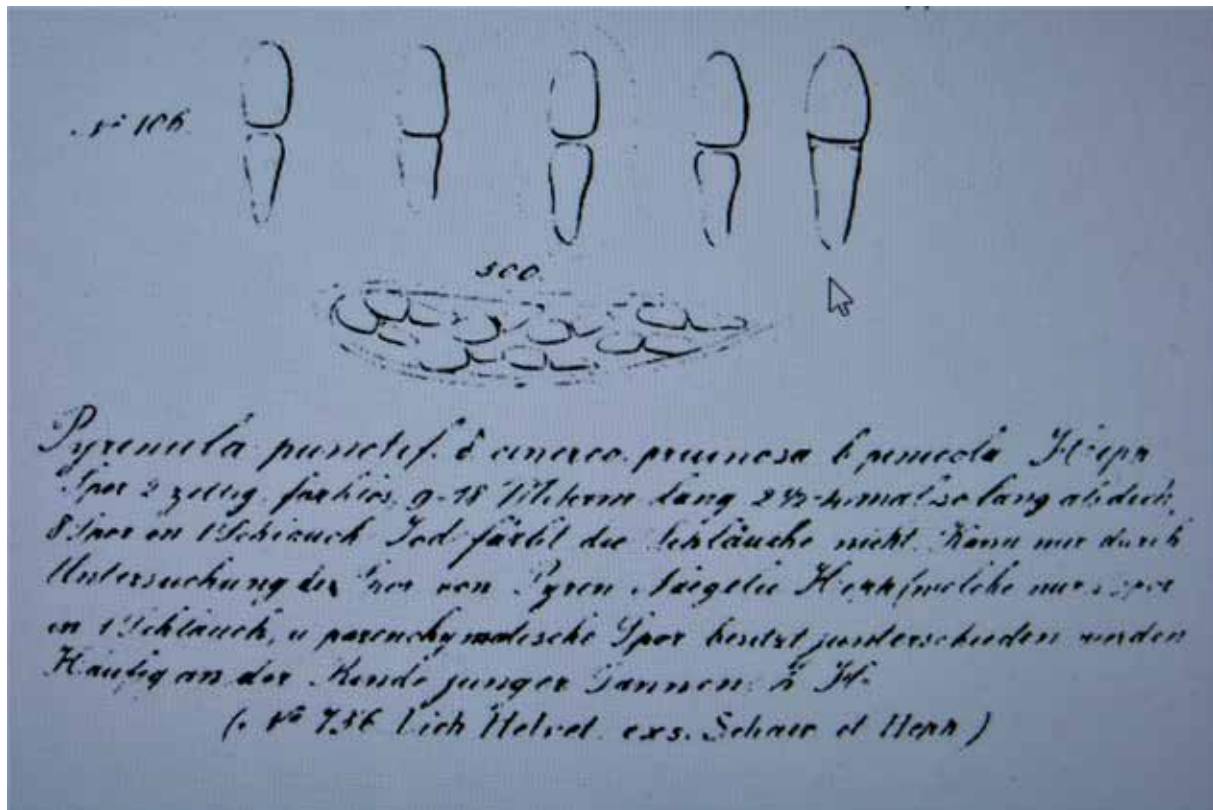 No 106.
500.
Pyrenula punctif. δ cinereo-pruinosa b pinicola Hepp
Spor 2 zellig, farblos, 9-18 Mikrm lang 2½-4 mal so lang als dick,
8 Spor in 1 Schlauch Jod färbt die Schläuche nicht. Kann nur durch
Untersuchung der Spor von Pyren Naegelii Hepp (welche nur Spor
in 1 Schlauch, u parenchymatische Spor besitzt) unterschieden werden
Häufig an der Rinde junger Tannen. H.
(No 756 Lich Helvet. exs. Schaer et Hepp)